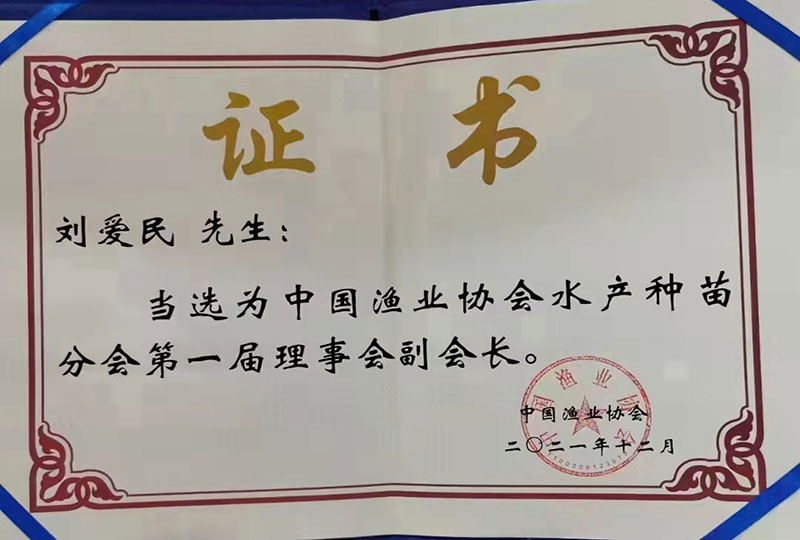 证 书
刘爱民 先生：
当选为中国渔业协会水产种苗
分会第一届理事会副会长。
中国渔业协会
中国渔业协会
二〇二一年十二月